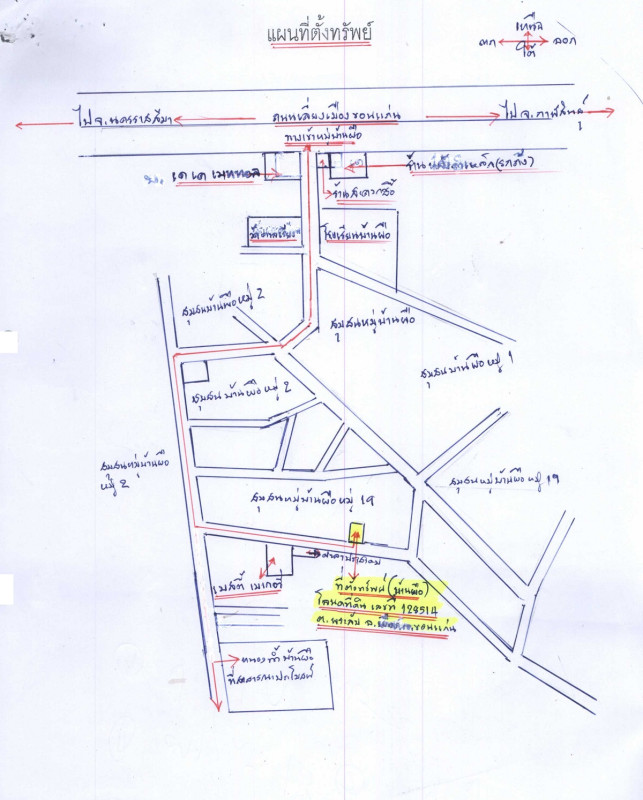 แผนที่ตั้งทรัพย์
เหนือ
ตก
ออก
ใต้
ไป จ.นครราชสีมา
ถนนเลี่ยงเมืองขอนแก่น
ไป จ.กาฬสินธุ์
ทางเข้าหมู่บ้านผือ
เค เค เมททอล
ร้าน
เหล็ก(รถถัง)
ร้านสะดวกซื้อ
โรงเรียนบ้านผือ
ชุมชนบ้านผือ หมู่ 2
ชุมชนหมู่บ้านผือ
ชุมชนบ้านผือ หมู่ 1
ชุมชนบ้านผือ หมู่ 2
ชุมชนหมู่บ้านผือ
หมู่ 2
ชุมชนหมู่บ้านผือ หมู่ 19
ชุมชนหมู่บ้านผือ หมู่ 19
ศาลาประชาคม
เบสตี้ เบเกอรี่
ที่ตั้งทรัพย์ (บ้านผือ)
โฉนดที่ดิน เลขที่ 128514
ต.พระลับ อ.เมือง จ.ขอนแก่น
หนองน้ำบ้านผือ
ที่สาธารณะประโยชน์